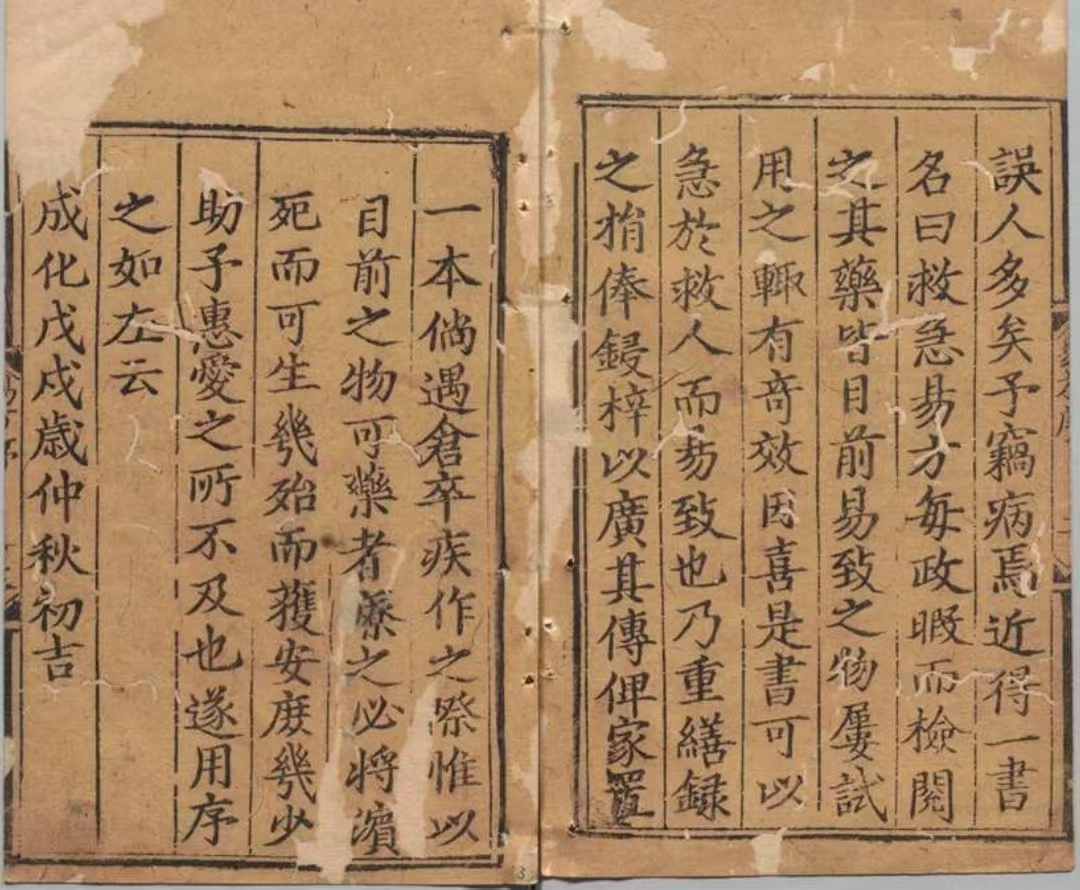 誤人多矣予竊病焉近得一書
名曰救急易方每政暇而檢閱
之其藥皆目前易致之物屢試
用之輙有奇效因喜是書可以
急於救人而易致也乃重繕録
之捐俸鋟梓以廣其傳俾家置
一本倘遇倉卒疾作之際惟以
目前之物可藥者療之必將濵
死而可生幾殆而獲安庻幾少
助予惠愛之所不及也遂用序
之如左云
成化戊戌歲仲秋初吉
3